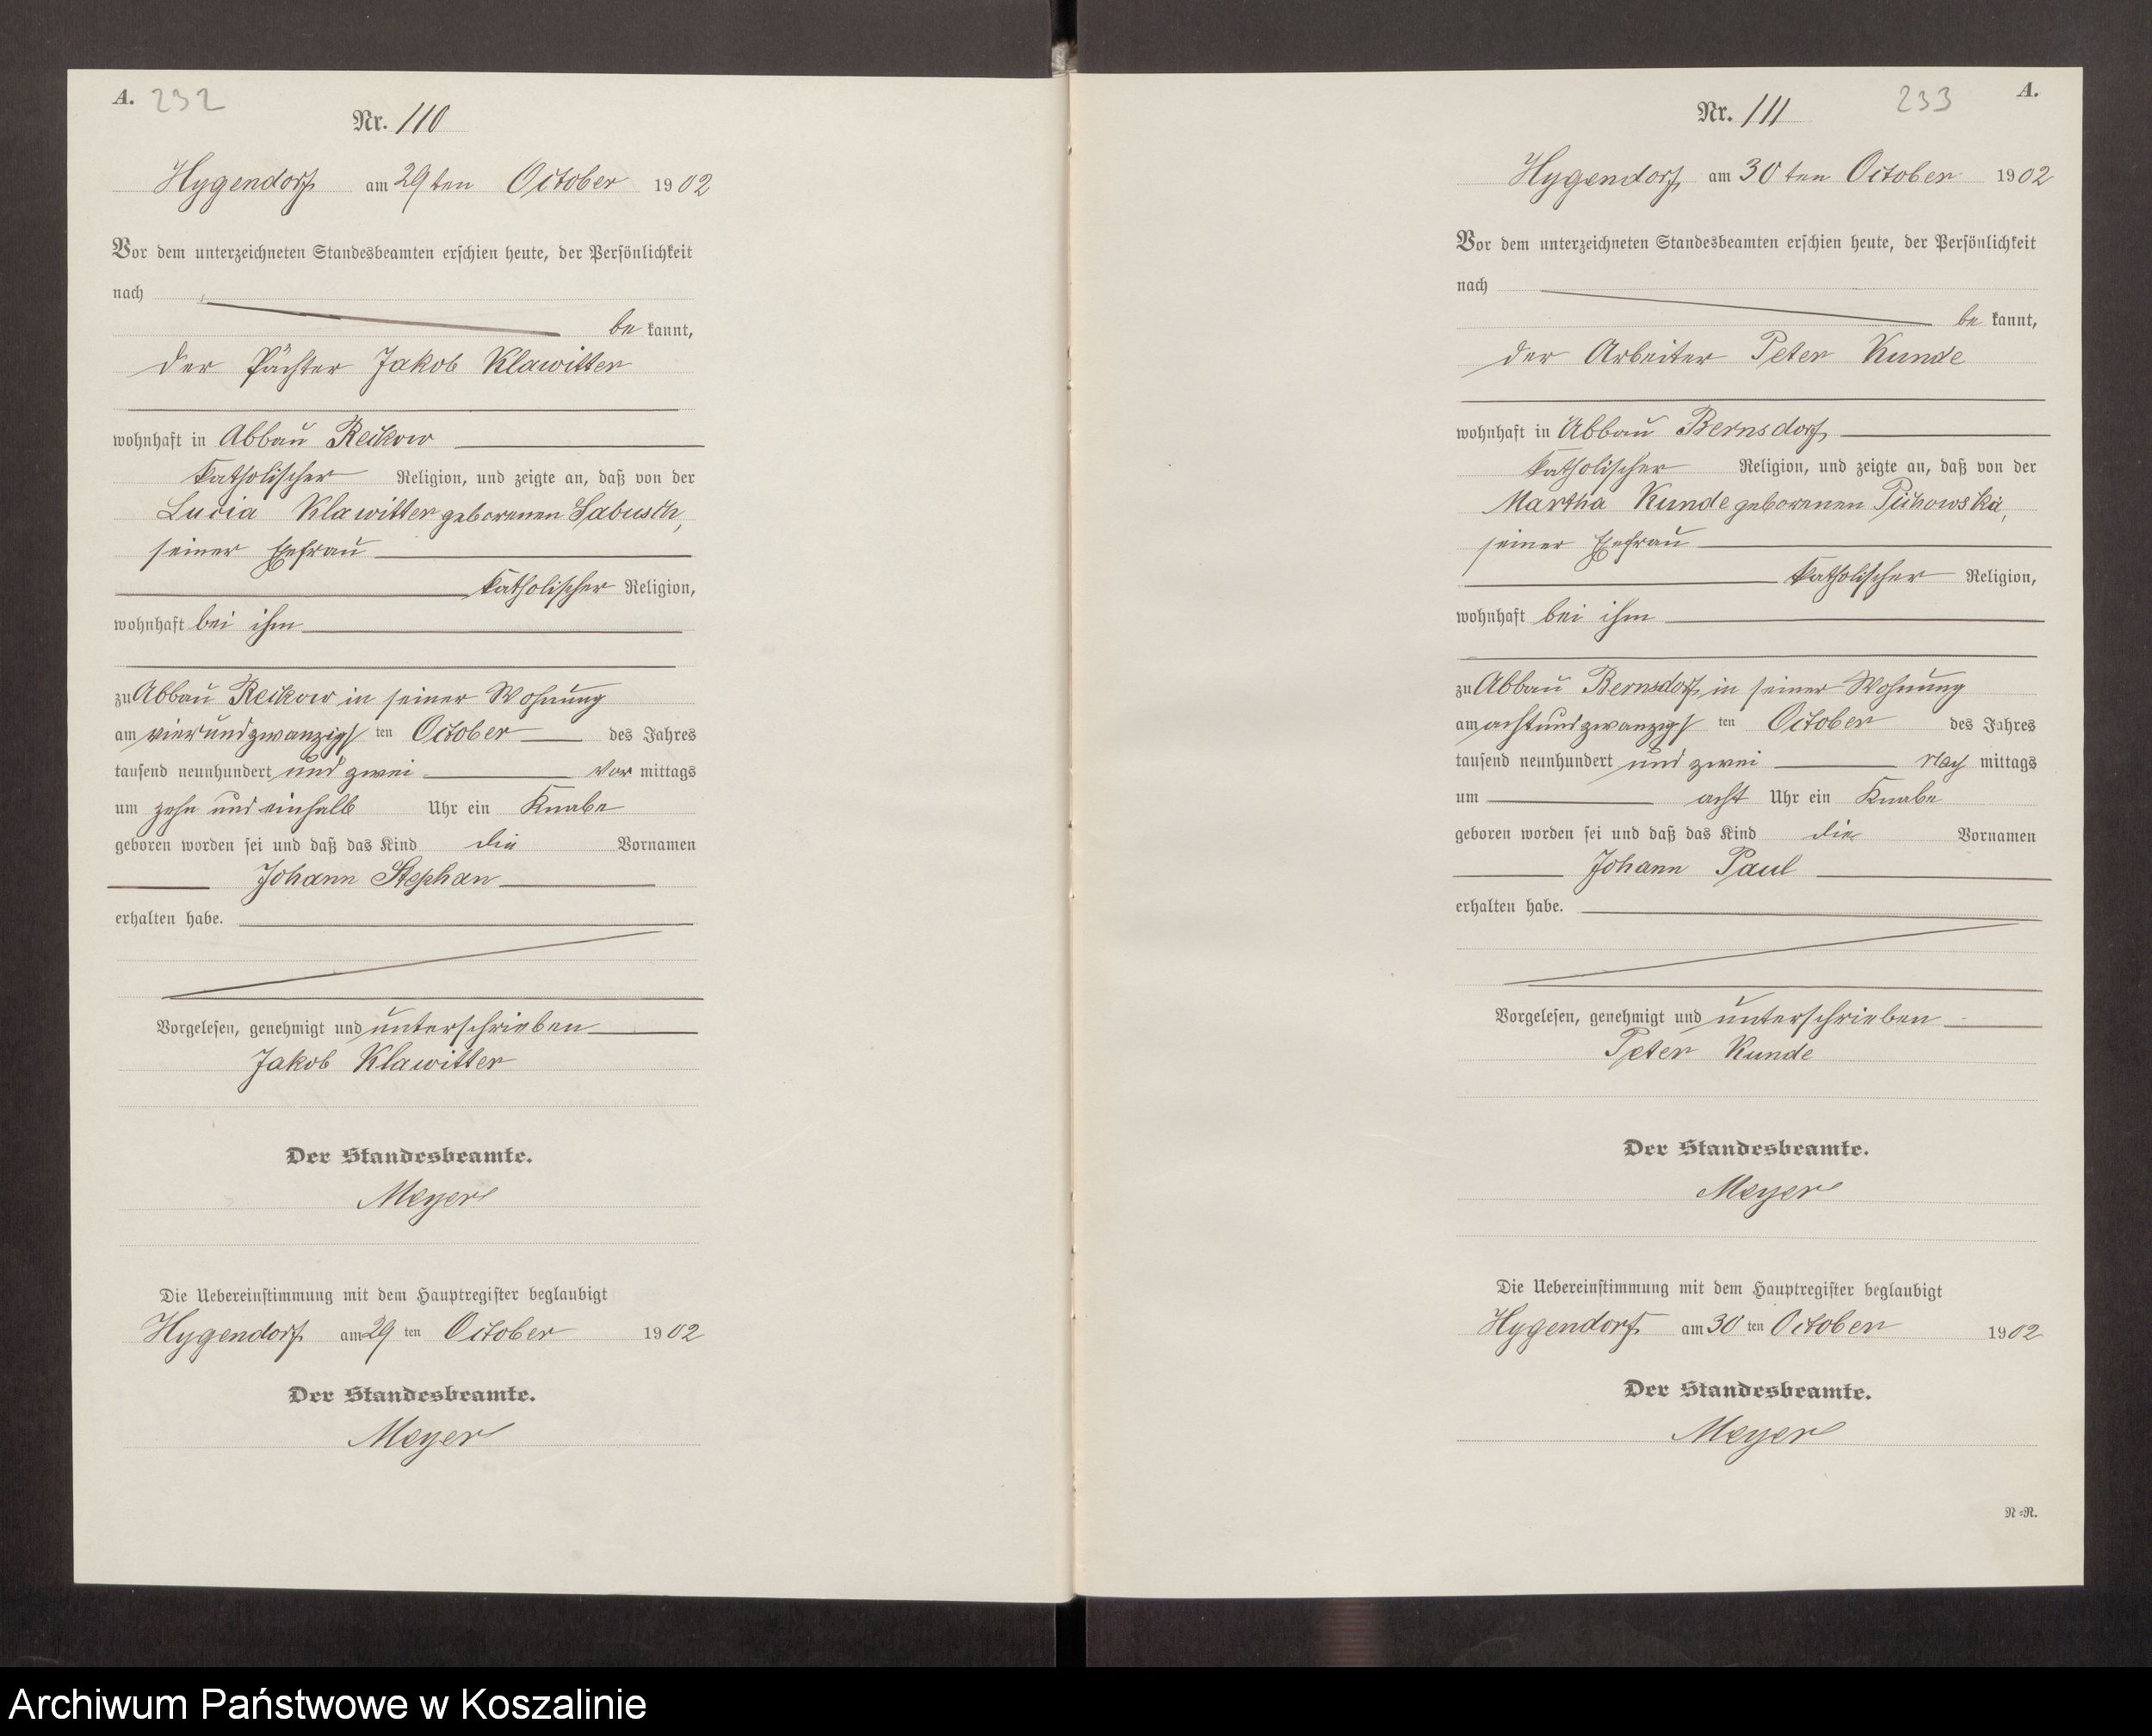 A. 232
Nr. 110
Hygendorf am 29ten October 1902
Vor dem unterzeichneten Standesbeamten erschien heute, der Persönlichkeit
nach
bekannt,
der Pächter Jakob Klawitter
wohnhaft in Abbau Reckow
katholischer Religion, und zeigte an, daß von der
Lucia Klawitter geborenen Labusch,
seiner Ehefrau
katholischer Religion,
wohnhaft bei ihm
zu Abbau Reckow in seiner Wohnung
am vierundzwanzigs ten October des Jahres
tausend neunhundert und zwei Vor mittags
um zehn und einhalb Uhr ein Knabe
geboren worden sei und daß das Kind die Vornamen
Johann Stephan
erhalten habe.
Vorgelesen, genehmigt und unterschrieben
Jakob Klawitter
Der Standesbeamte.
Meyer
Die Uebereinstimmung mit dem Hauptregister beglaubigt
Hygendorf am 29 ten October 1902
Der Standesbeamte.
Meyer
233 A.
Nr. 111
Hygendorf am 30ten October 1902
Vor dem unterzeichneten Standesbeamten erschien heute, der Persönlichkeit
nach
bekannt,
der Arbeiter Peter Kunde
wohnhaft in Abbau Bernsdorf
katholischer Religion, und zeigte an, daß von der
Martha Kunde geborenen
seiner Ehefrau
katholischer Religion,
wohnhaft bei ihm
zu Abbau Bernsdorf in seiner Wohnung
am achtundzwanzigs ten October des Jahres
tausend neunhundert und zwei Nach mittags
um acht Uhr ein Knabe
geboren worden sei und daß das Kind die Vornamen
Johann Paul
erhalten habe.
Vorgelesen, genehmigt und unterschrieben
Peter Kunde
Der Standesbeamte.
Meyer
Die Uebereinstimmung mit dem Hauptregister beglaubigt
Hygendorf am 30 ten October 1902
Der Standesbeamte.
Meyer
N=R.
Archiwum Państwowe w Koszalinie